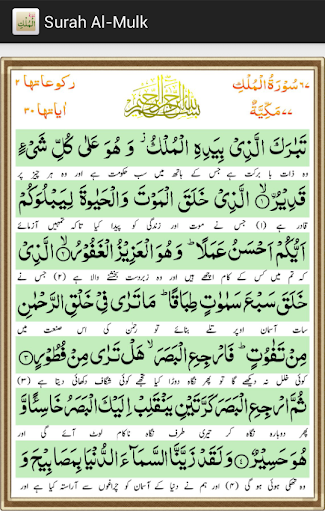 Surah Al-Mulk
٦٧ سُوْرَةُ الْمُلْكِ
رکوعاتها ٢
بسم الله الرحمن الرحيم
مَكِّيَّةٌ ٧٧
اٰیاتها ٣٠
تَبٰرَكَ الَّذِیْ بِیَدِهِ الْمُلْكُ ؗ وَ هُوَ عَلٰی كُلِّ شَیْءٍ
وہ ذات با برکت ہے جس کے ہاتھ میں سب حکومت ہے اور وہ ہر چیز پر
قَدِیْرُ ۟ۙ﴿۱﴾ الَّذِیْ خَلَقَ الْمَوْتَ وَالْحَیٰوةَ لِیَبْلُوَكُمْ
قادر ہے (۱) جس نے موت اور زندگی کو پیدا کیا تاکہ تمہیں آزمائے
اَیُّكُمْ اَحْسَنُ عَمَلًا ؕ وَهُوَ الْعَزِیْزُ الْغَفُوْرُ ۙ﴿۲﴾ الَّذِیْ
کہ تم میں کس کے کام اچھے ہیں اور وہ زبردست بخشنے والا ہے (۲) جس نے
خَلَقَ سَبْعَ سَمٰوٰتٍ طِبَاقًا ؕ مَا تَرٰی فِیْ خَلْقِ الرَّحْمٰنِ
سات آسمان اوپر تلے بنائے تو رحمٰن کی اس صنعت میں
مِنْ تَفٰوُتٍ ؕ فَارْجِعِ الْبَصَرَ ۙ هَلْ تَرٰی مِنْ فُطُوْرٍ ﴿۳﴾
کوئی خلل نہ دیکھے گا تو پھر نگاہ دوڑا کیا تجھے کوئی شگاف دکھائی دیتا ہے (۳)
ثُمَّ ارْجِعِ الْبَصَرَ كَرَّتَیْنِ یَنْقَلِبْ اِلَیْكَ الْبَصَرُ خَاسِئًا وَّ
پھر دوبارہ نگاہ کر تیری طرف نگاہ ناکام لوٹ آئے گی اور
هُوَ حَسِیْرٌ ﴿۴﴾ وَ لَقَدْ زَیَّنَّا السَّمَآءَ الدُّنْیَا بِمَصَابِیْحَ وَ
وہ تھکی ہوئی ہو گی (۴) اور ہم نے دنیا کے آسمان کو چراغوں سے آراستہ کیا ہے اور